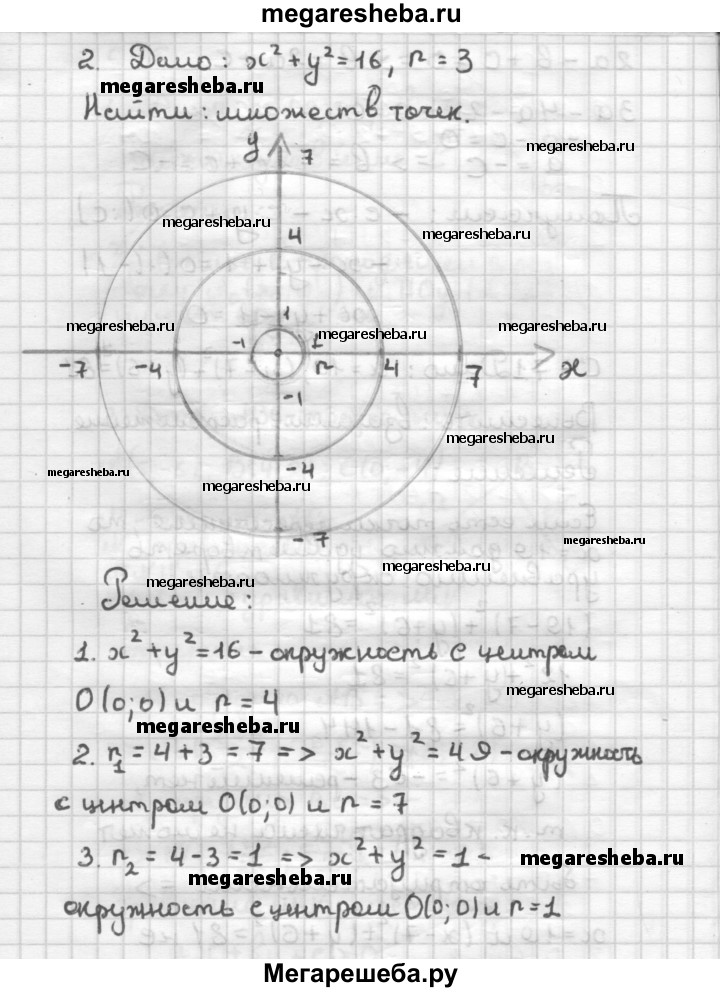 megaresheba.ru
2. Дано: x²+y²=16, r=3
megaresheba.ru
Найти: множеств точек.
y 7
megaresheba.ru
megaresheba.ru
4 megaresheba.ru
1
megaresheba.ru -1 1 megaresheba.ru megaresheba.ru
-7 -4 r 4 7 x
-1
megaresheba.ru
megaresheba.ru -4
megaresheba.ru
-7 megaresheba.ru
megaresheba.ru
megaresheba.ru
Решение:
1. x²+y²=16 - окружность с центром
megaresheba.ru
O(0;0) и r=4
megaresheba.ru
2. r₁=4+3=7 => x²+y²=49 - окружность
с цнтром O(0;0) и r=7
3. r₂=4-3=1 => x²+y²=1 -
megaresheba.ru
megaresheba.ru
окружность с центром O(0;0) и r=1
Мегарешеба.ру